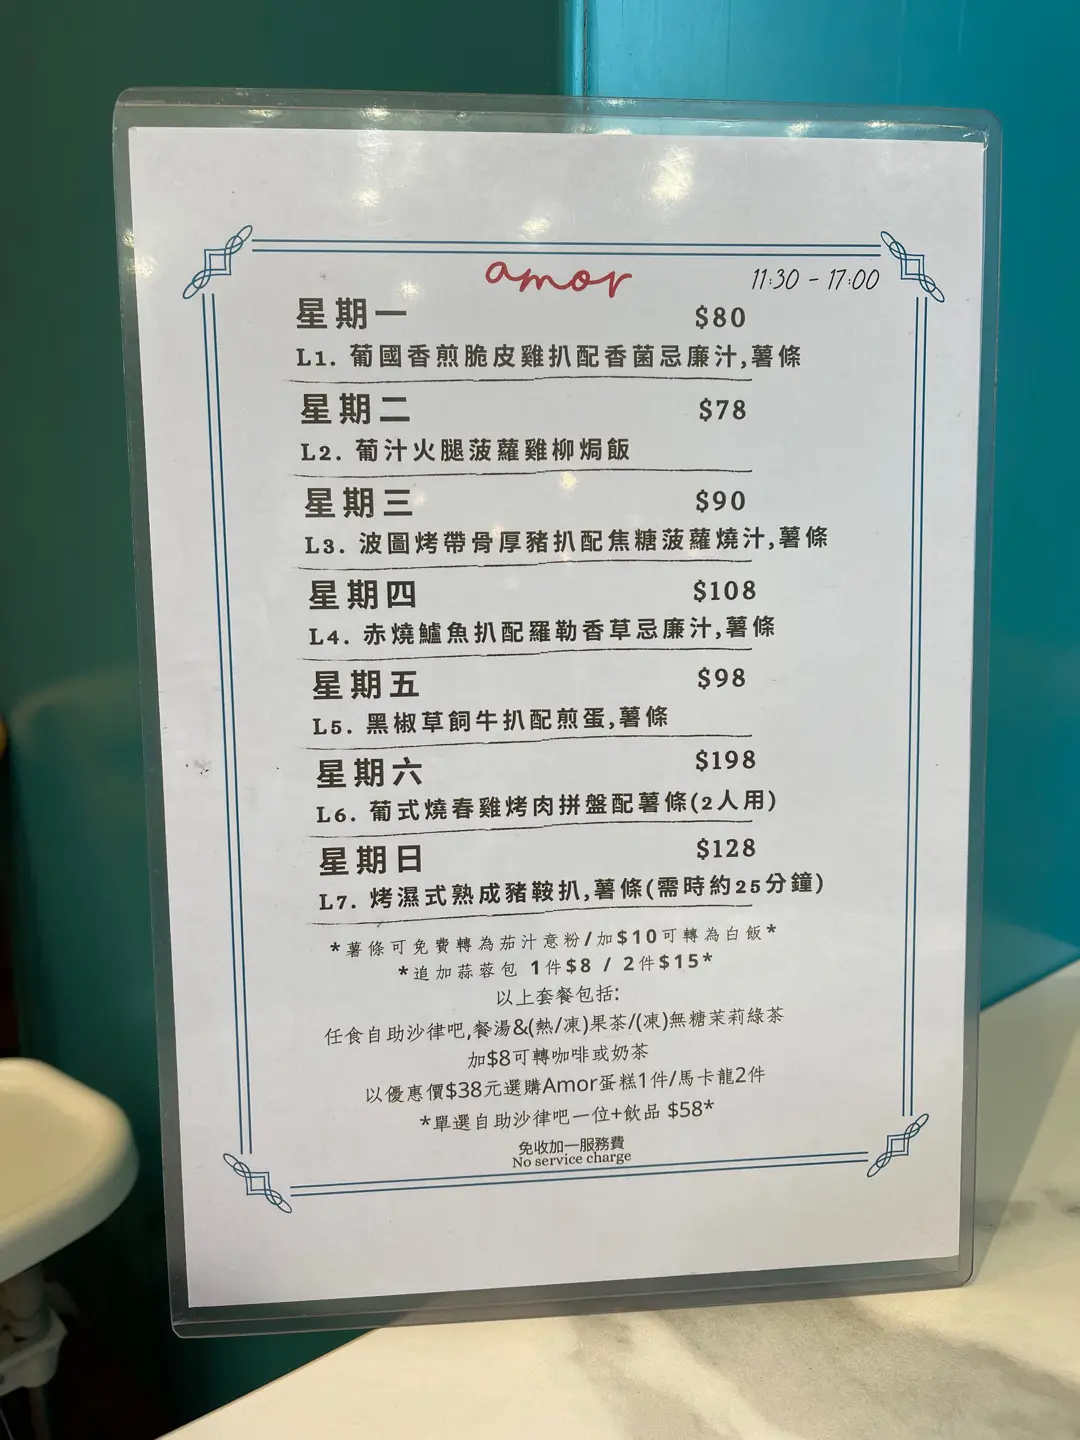 amor 11:30 - 17:00
星期一 $80
L1. 葡國香煎脆皮雞扒配香菌忌廉汁,薯條
星期二 $78
L2. 葡汁火腿菠蘿雞柳焗飯
星期三 $90
L3. 波圖烤帶骨厚豬扒配焦糖菠蘿燒汁,薯條
星期四 $108
L4. 赤燒鱸魚扒配羅勒香草忌廉汁,薯條
星期五 $98
L5. 黑椒草飼牛扒配煎蛋,薯條
星期六 $198
L6. 葡式燒春雞烤肉拼盤配薯條(2人用)
星期日 $128
L7. 烤濕式熟成豬鞍扒,薯條(需時約25分鐘)
*薯條可免費轉為茄汁意粉/加$10可轉為白飯*
*追加蒜蓉包 1件$8 / 2件$15*
以上套餐包括:
任食自助沙律吧,餐湯&(熱/凍)果茶/(凍)無糖茉莉綠茶
加$8可轉咖啡或奶茶
以優惠價$38元選購Amor蛋糕1件/馬卡龍2件
*單選自助沙律吧一位+飲品 $58*
免收加一服務費
No service charge